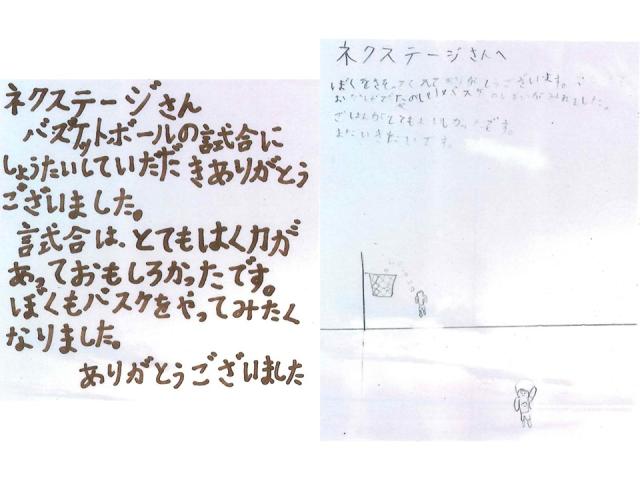 ネクステージさん
バスケットボールの試合に
しょうたいしていただきありがとう
ございました。
試合は、とてもはく力が
あっておもしろかったです。
ぼくもバスケをやってみたく
なりました。
ありがとうございました
ネクステージさんへ
ぼくをさそってくれてありがとうございます。
バスケのしあいがみれました。
ごはんがとてもおいしかったです。
またいきたいです。